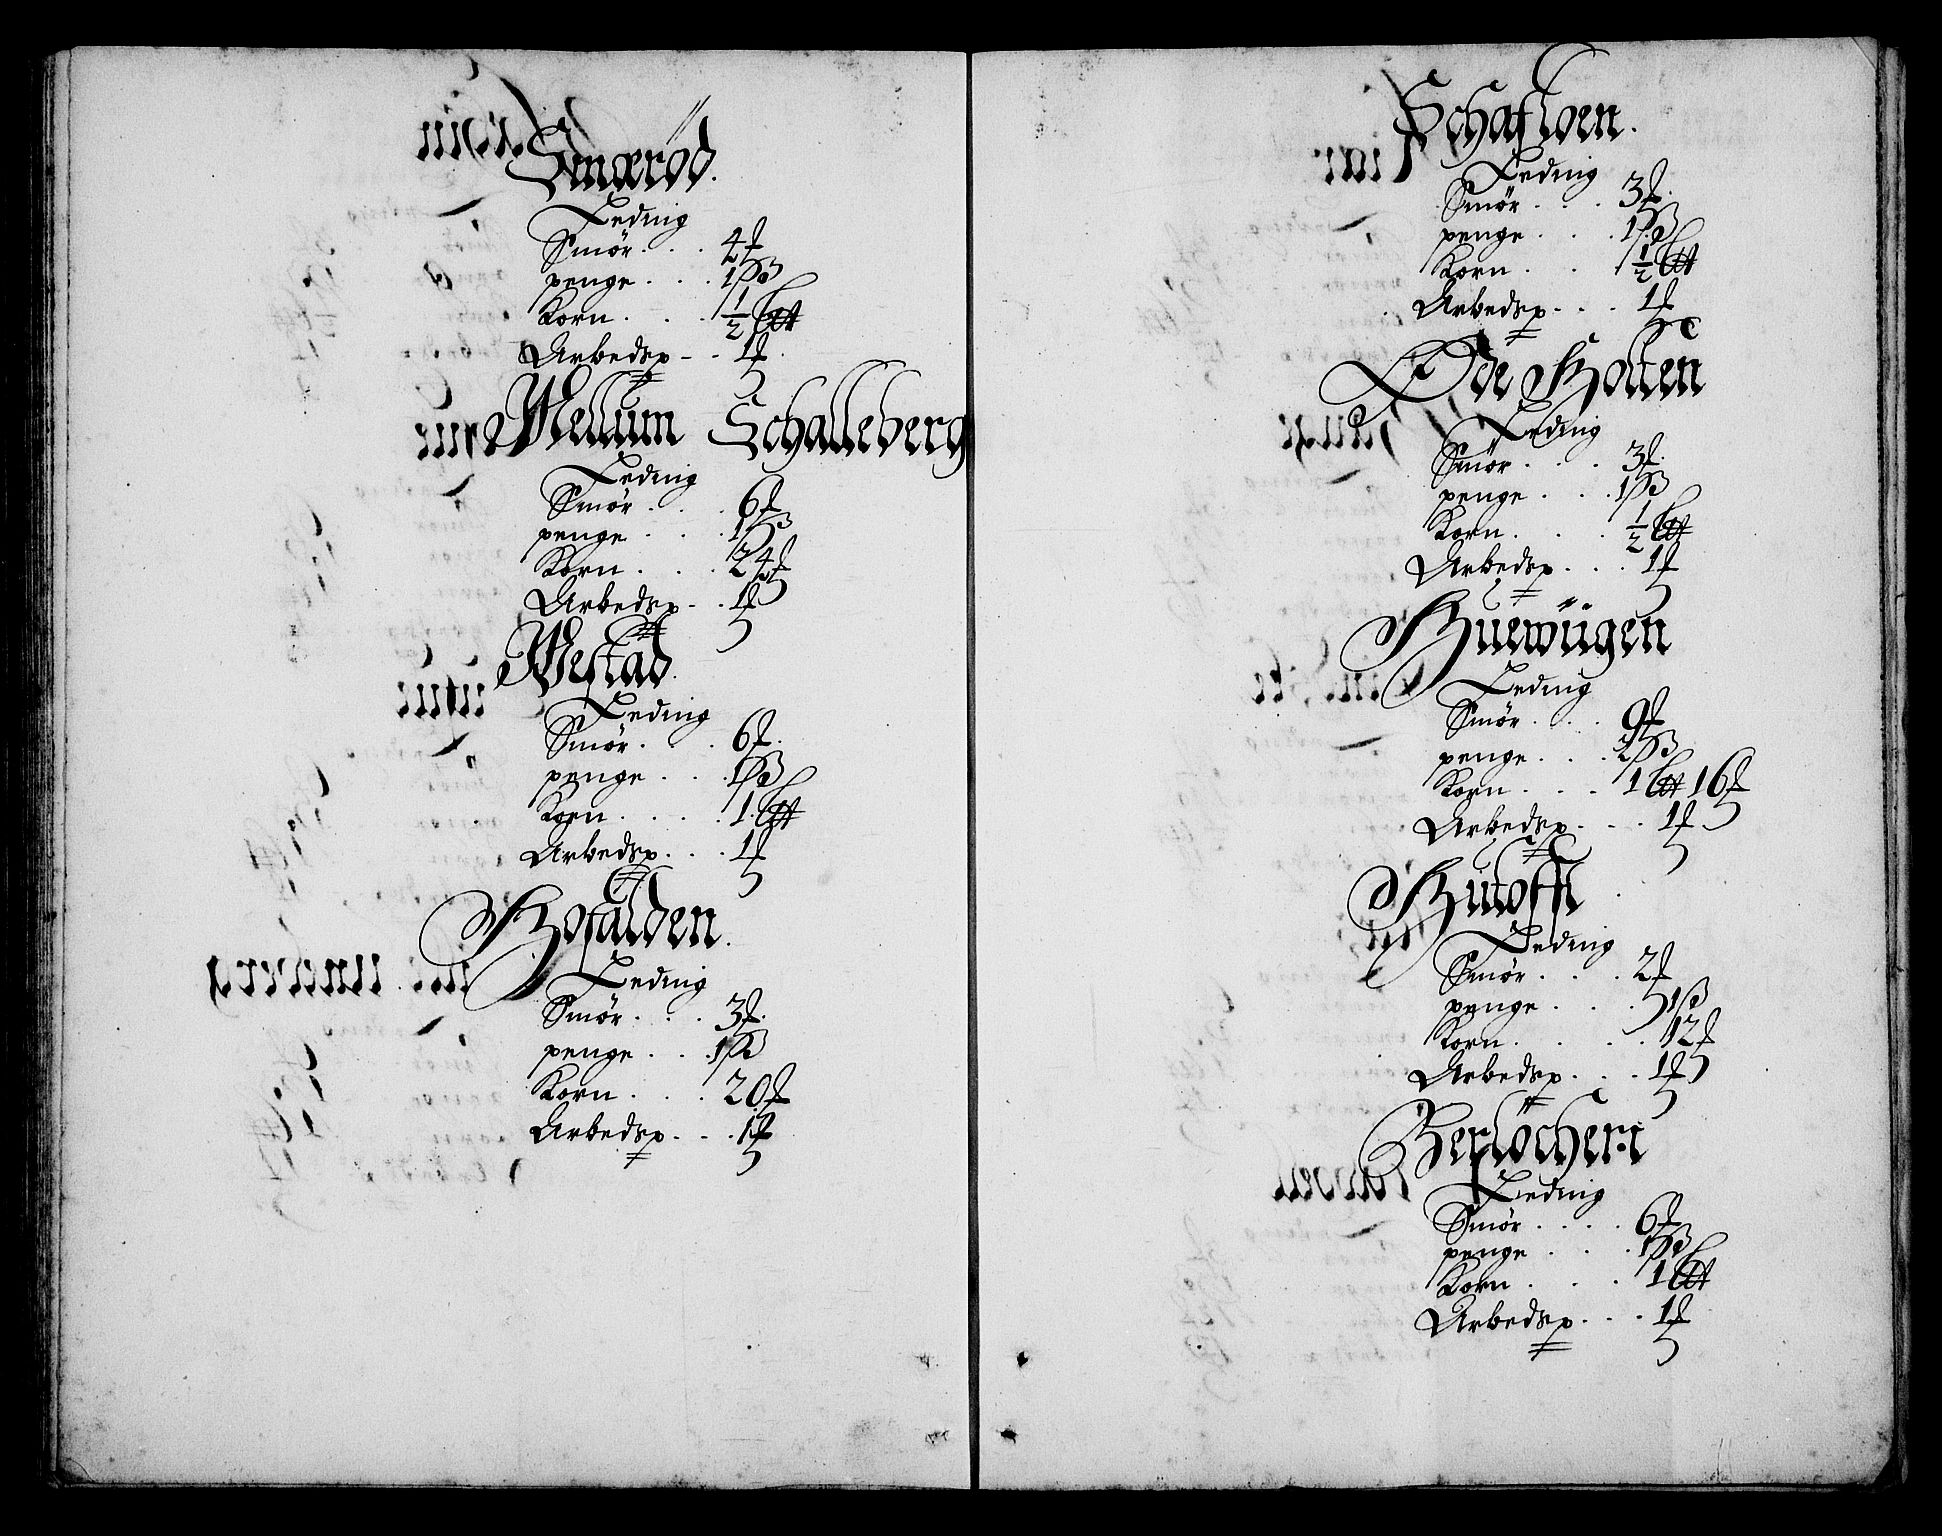 Snærød.
Leding
Smør . . . 4
penge . . . 1 ß
Korn . . . ½
Arbedsp . . 1
Mellum Schalleberg
Leding
Smør . . . 6
penge . . . 1 ß
Korn . . . 24
Arbedsp . . 1
Westad.
Leding
Smør . . . 6
penge . . . 1 ß
Korn . . . . 1
Arbedsp . . . 1
Hofalden.
Leding
Smør . . . 3
penge . . . 1 ß
Korn . . . 20
Arbedsp . . . 1
Schafloen.
Leding
Smør . . . 3
penge . . . 1 ß
Korn . . . ½
Arbedsp . . . 1
Øde Holten
Leding
Smør . . . 3
penge . . . 1 ß
Korn . . . . ½
Arbedsp . . . 1
Huewügen
Leding
Smør . . . 9
penge . . . 2 ß
Korn . . . 1 16
Arbedsp . . . 1
Leding
Smør . . . 2
penge . . . . 1 ß
Korn . . . . 12
Arbedsp . . . 1
Leding
Smør . . . . 6
penge . . . 1 ß
Korn . . . . 1
Arbedsp . . . 1